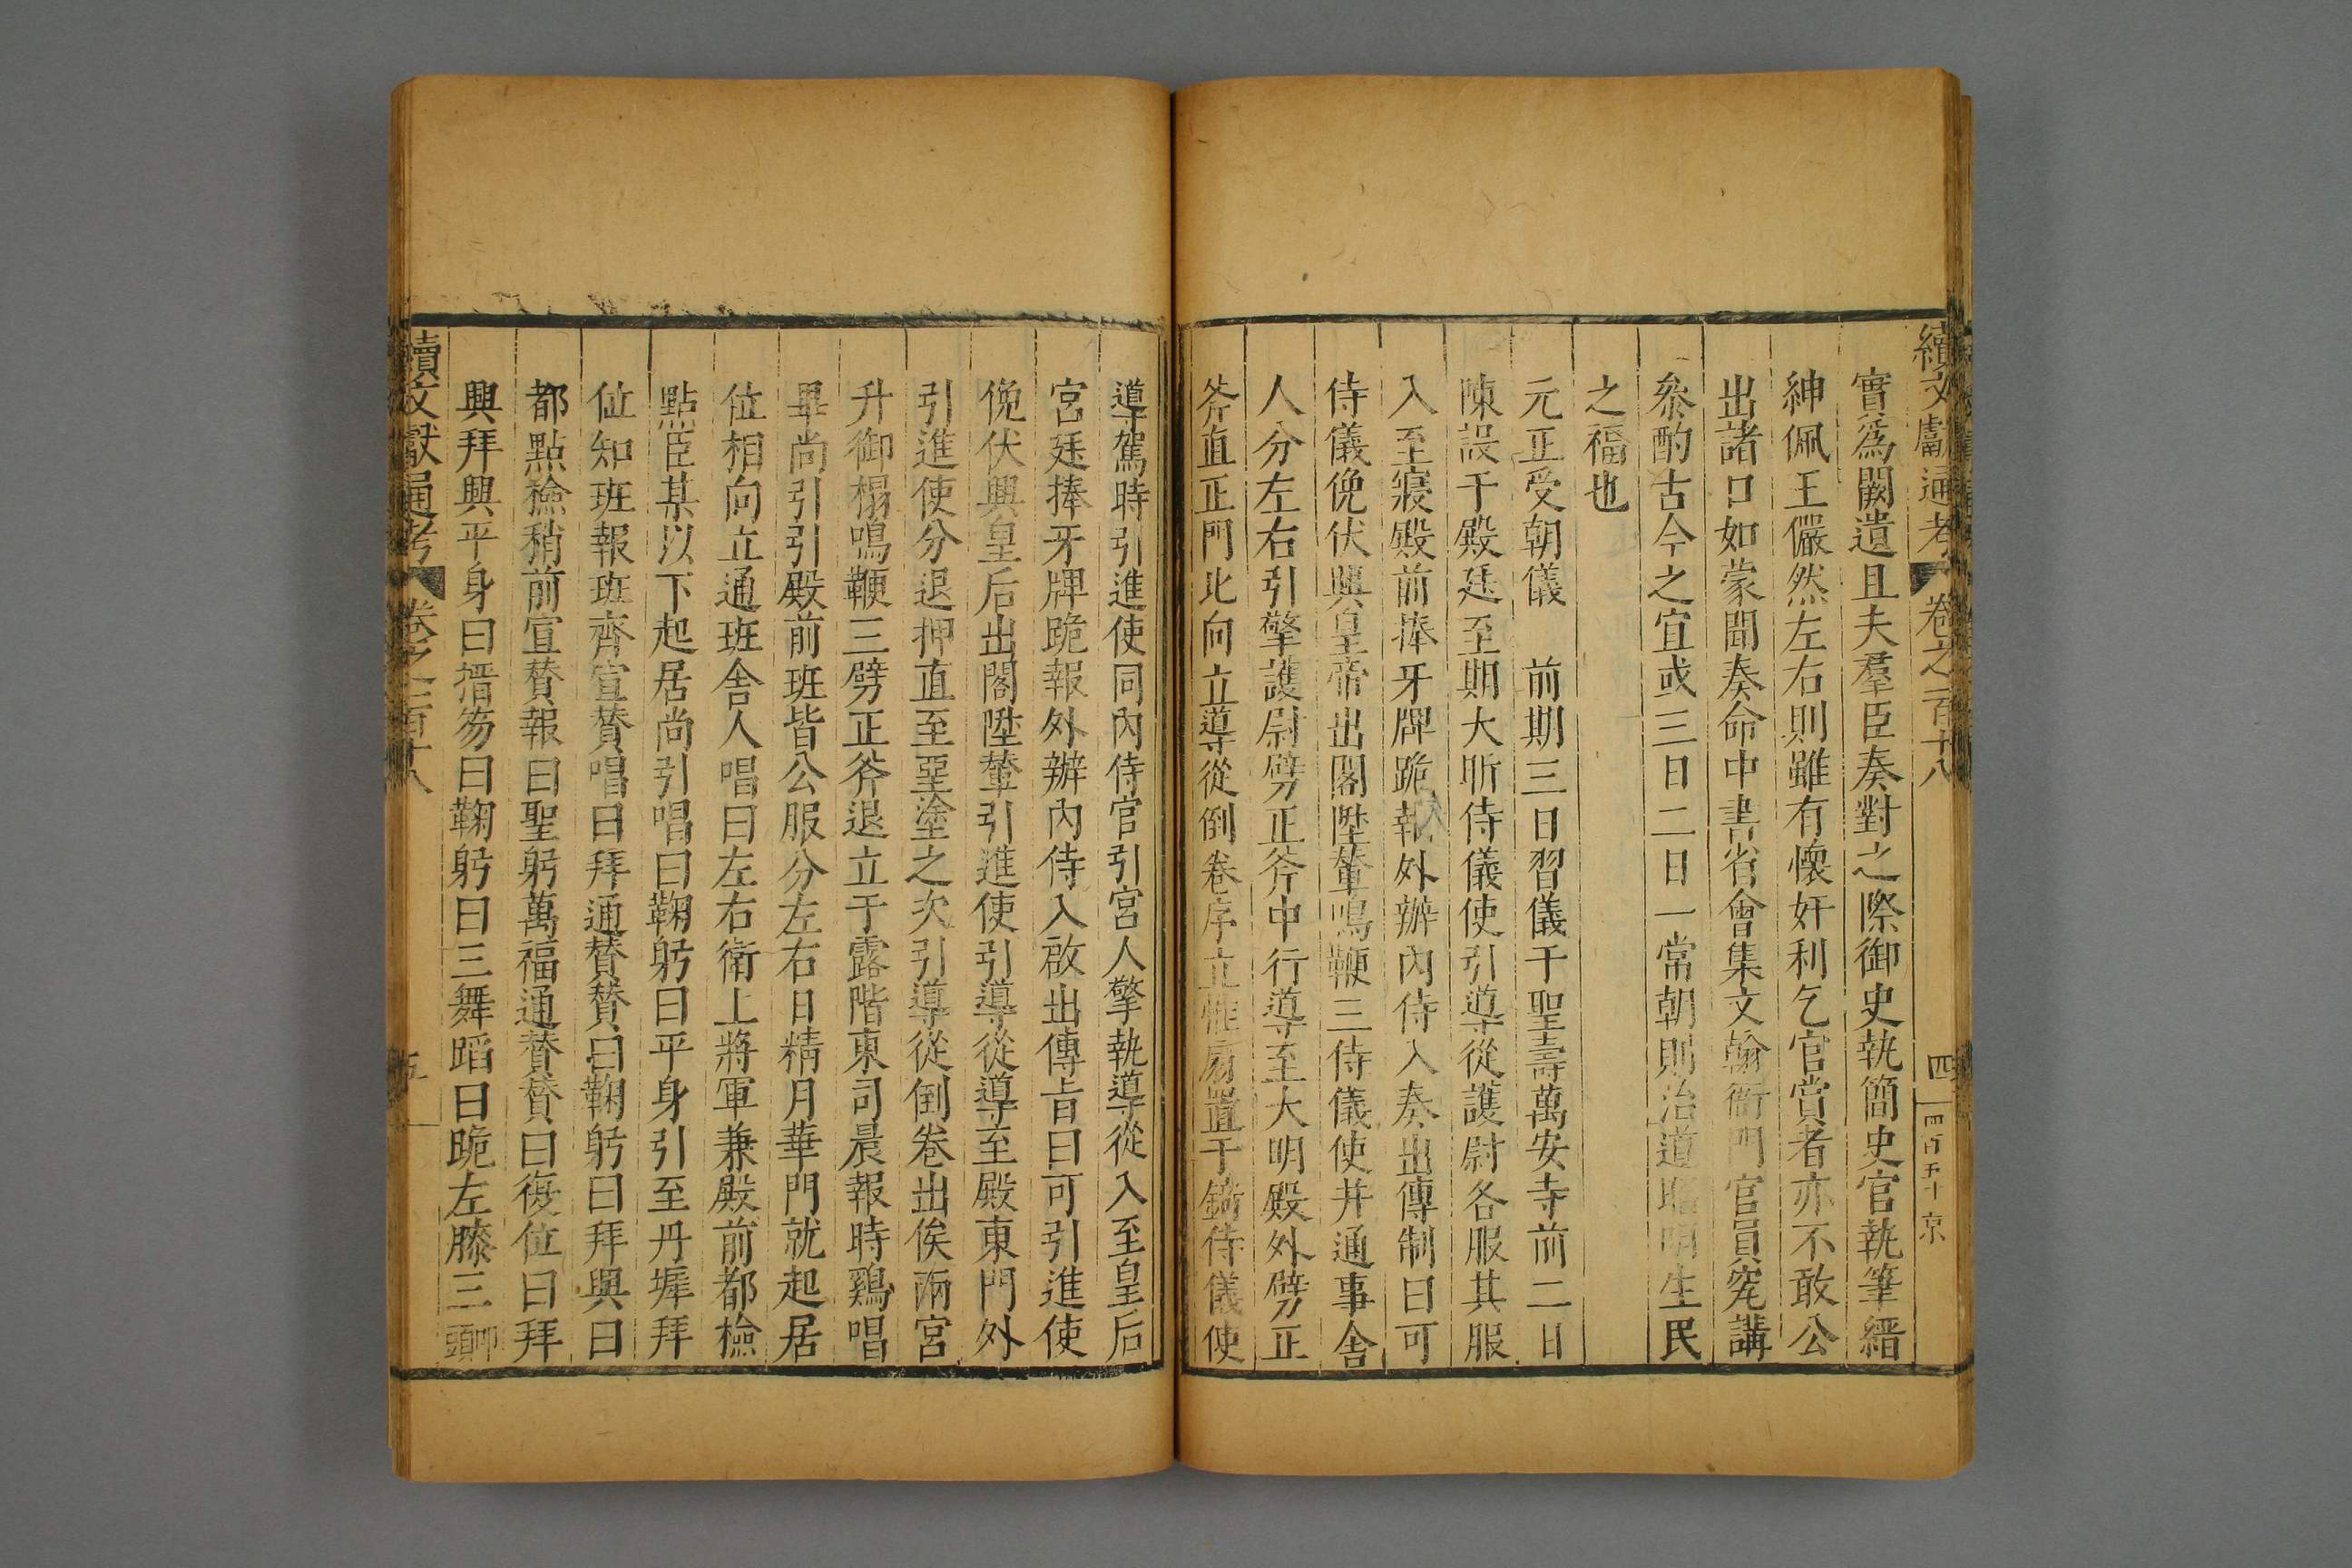 續文獻通考 卷之一百十八 四 四百五十 京
實爲闕遺且夫羣臣奏對之際御史執簡史官執筆縉
紳佩王儼然左右則雖有懷奸利乞官賞者亦不敢公
出諸口如蒙聞奏命中書省會集文翰衙門官員究講
叅酌古今之宜或三日二日一常朝則治道昭明生民
之福也
元正受朝儀 前期三日習儀于聖壽萬安寺前二日
陳設于殿廷至期大昕侍儀使引導從護尉各服其服
入至寢殿前捧牙牌跪報外辦內侍入奏出傳制曰可
侍儀俛伏興皇帝出閣陞輦鳴鞭三侍儀使并通事舍
人分左右引擎護尉劈正斧中行導至大明殿外劈正
斧直正門北向立導從倒卷序立惟扇置于錡侍儀使
導駕時引進使同內侍官引宮人擎執導從入至皇后
宮廷捧牙牌跪報外辦內侍入啟出傳旨曰可引進使
俛伏興皇后出閣陞輦引進使引導從導至殿東門外
引進使分退押直至堊塗之次引導從倒卷出俟兩宮
升御榻鳴鞭三劈正斧退立于露階東司晨報時鷄唱
畢尚引引殿前班皆公服分左右日精月華門就起居
位相向立通班舍人唱曰左右衛上將軍兼殿前都檢
點臣某以下起居尚引唱曰鞠躬曰平身引至丹墀拜
位知班報班齊宣贊唱曰拜通贊贊曰鞠躬曰拜興曰
都點檢稍前宣贊報曰聖躬萬福通贊贊曰復位曰拜
興拜興平身曰搢笏曰鞠躬曰三舞蹈曰跪左膝三叩頭
續文獻通考 卷之一百十八 五